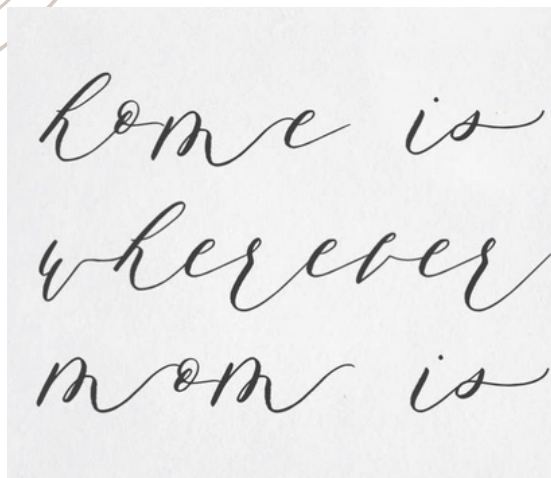 home is
wherever
mom is